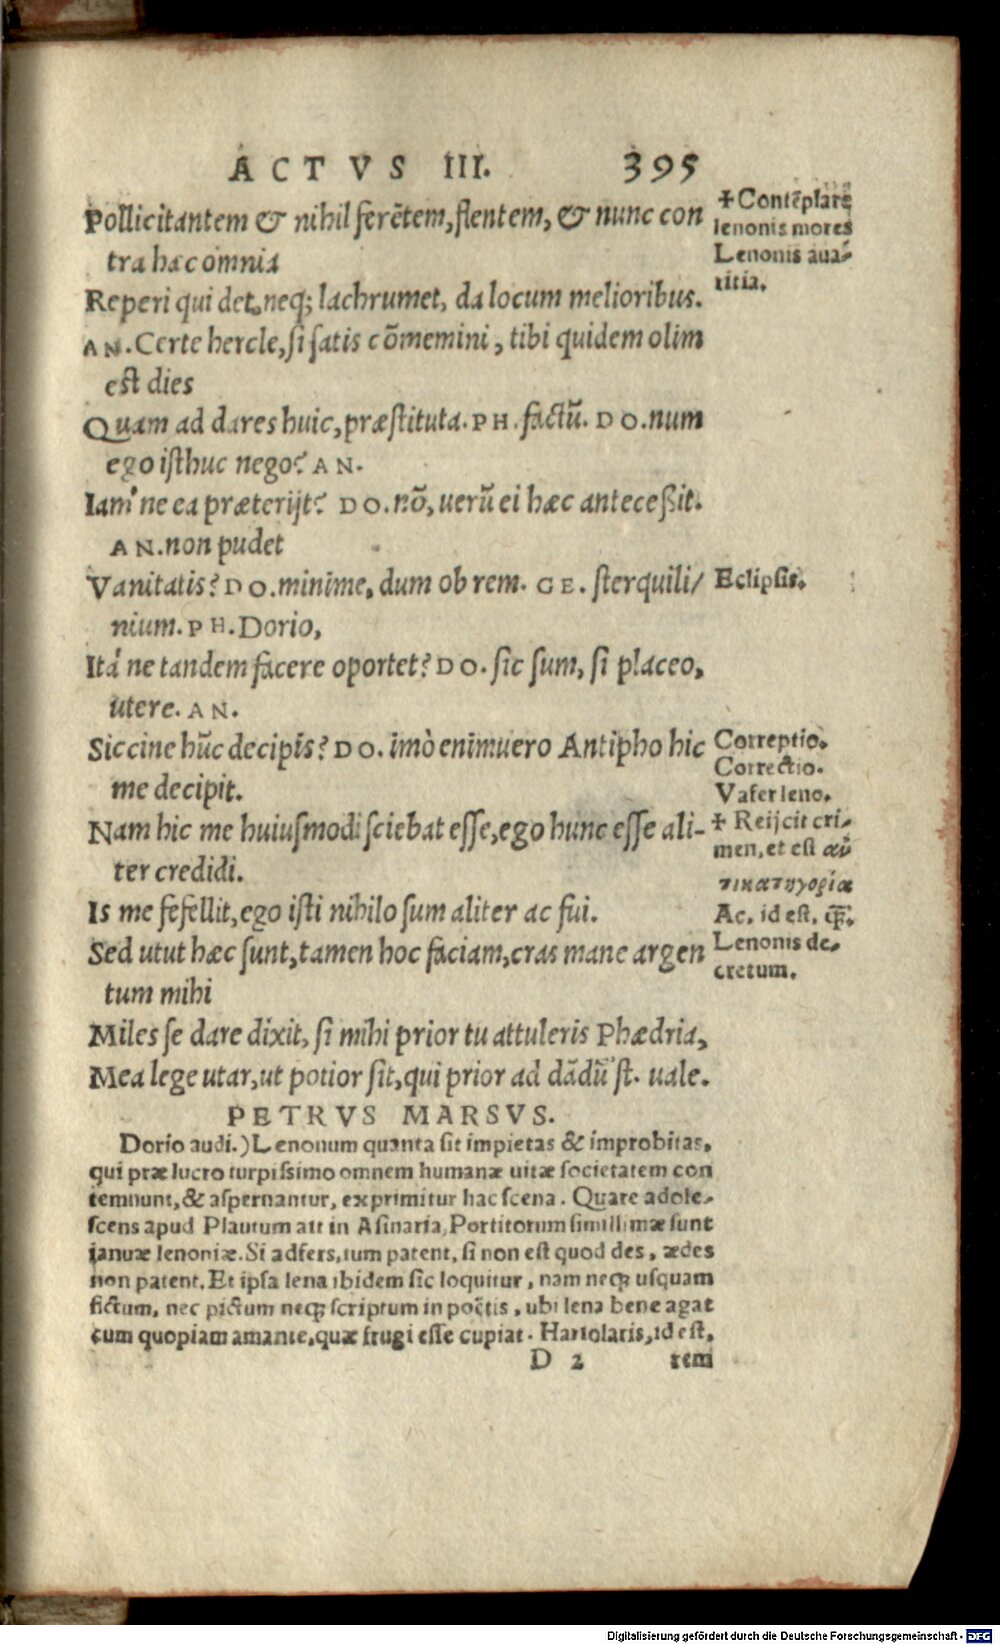 ACTVS III. 395
Pollicitantem & nihil ferētem, flentem, & nunc con
tra hæc omnia
Reperi qui det, neq; lachrumet, da locum melioribus.
AN. Certe hercle, si satis cōmemini, tibi quidem olim
est dies
Quam ad dares huic, præstituta. PH. factū. DO. num
ego isthuc nego? AN.
Iam' ne ea præterijt? DO. nō, uerū ei hæc anteceßit.
AN. non pudet
Vanitatis? DO. minime, dum ob rem. GE. sterquili/
nium. PH. Dorio,
Ita' ne tandem facere oportet? DO. sic sum, si placeo,
utere. AN.
Siccine hūc decipis? DO. imò enimuero Antipho hic
me decipit.
Nam hic me huiusmodi sciebat esse, ego hunc esse ali-
ter credidi.
Is me fefellit, ego isti nihilo sum aliter ac fui.
Sed utut hæc sunt, tamen hoc faciam, cras mane argen
tum mihi
Miles se dare dixit, si mihi prior tu attuleris Phædria,
Mea lege utar, ut potior sit, qui prior ad dādū'st. uale.
✝ Contēplare
lenonis mores
Lenonis aua-
ritia.
Eclipsis.
Correptio.
Correctio.
Vafer leno.
✝ Reijcit cri-
men, et est ἀν
τικατηγορία
Ac. id est, ꝙ̃.
Lenonis de-
cretum.
PETRVS MARSVS.
Dorio audi.) Lenonum quanta sit impietas & improbitas,
qui præ lucro turpissimo omnem humanæ uitæ societatem con
temnunt, & aspernantur, exprimitur hac scena. Quare adole-
scens apud Plautum ait in Asinaria, Portitorum simillimæ sunt
ianuæ lenoniæ. Si adfers, tum patent, si non est quod des, ædes
non patent. Et ipsa lena ibidem sic loquitur, nam neq; usquam
fictum, nec pictum neq; scriptum in poëtis, ubi lena bene agat
cum quopiam amante, quæ frugi esse cupiat. Hariolaris, id est,
D 2 rem
Digitalisierung gefördert durch die Deutsche Forschungsgemeinschaft - DFG